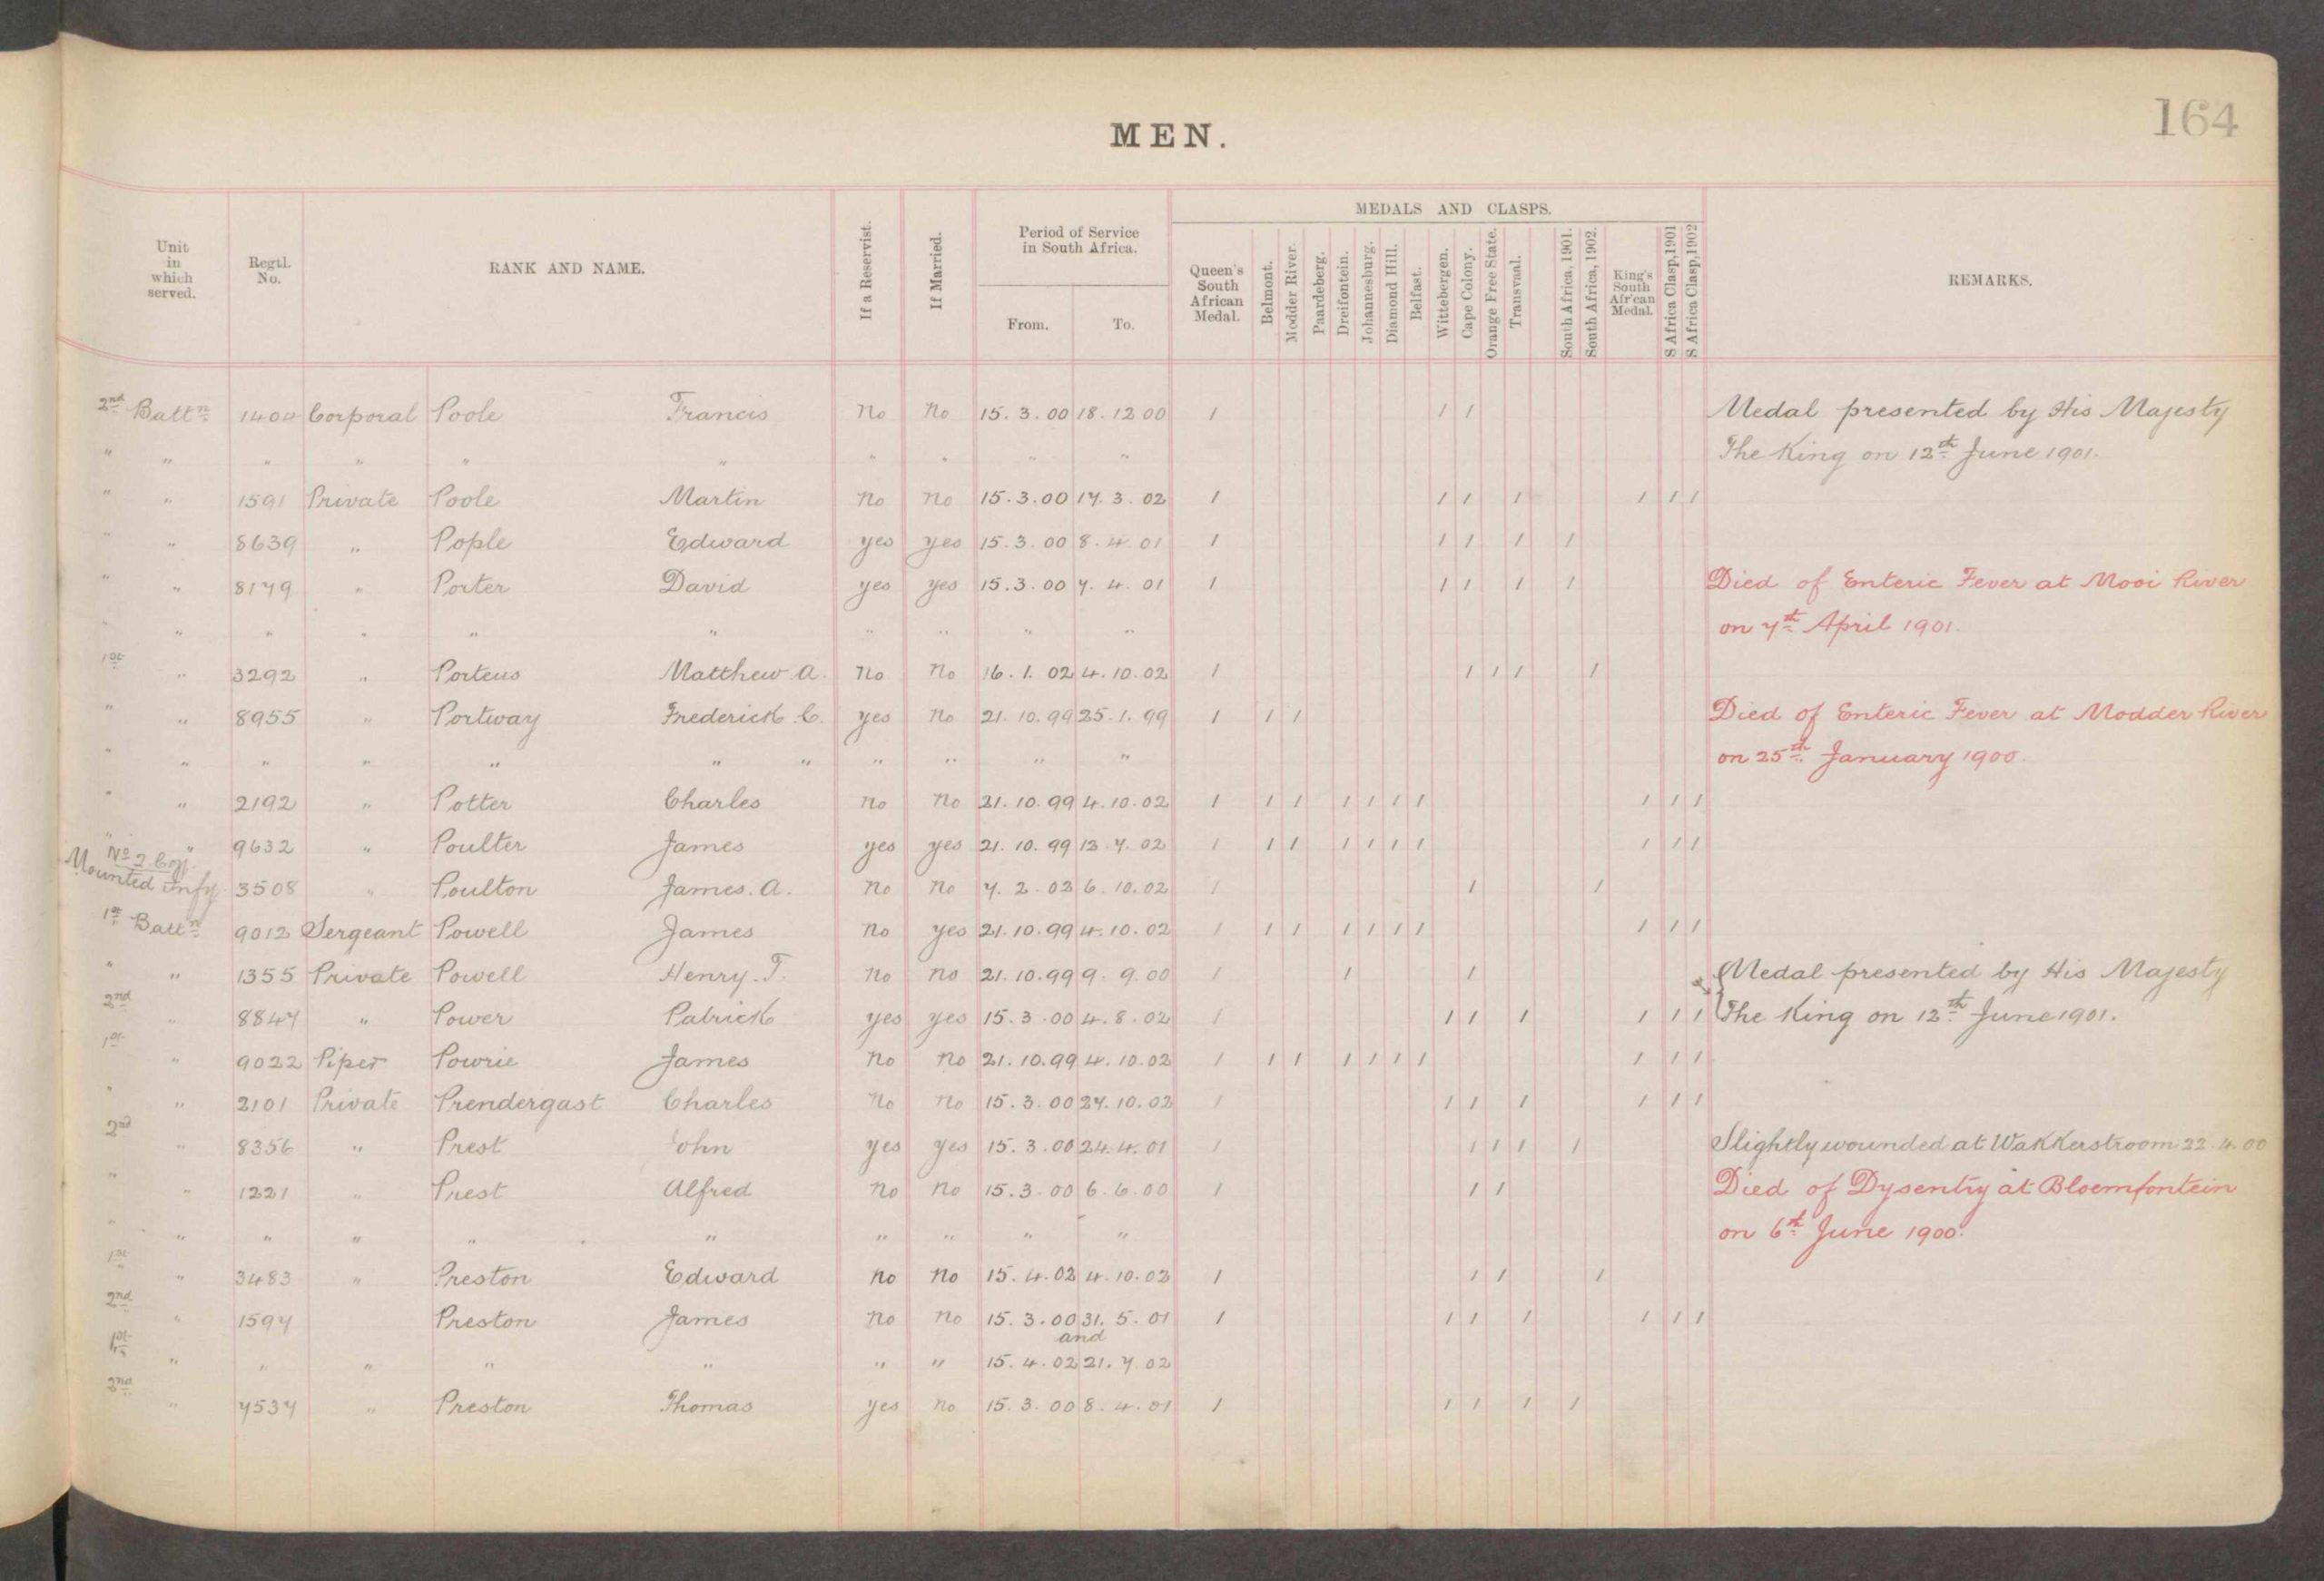 164
MEN.
Unit in which served.
Regtl. No.
RANK AND NAME.
If a Reservist.
If Married.
Period of Service in South Africa.
From.
To.
MEDALS AND CLASPS.
Queen's South African Medal.
Belmont.
Modder River.
Paardeberg.
Dreifontein.
Johannesburg.
Diamond Hill.
Belfast.
Wittebergen.
Cape Colony.
Orange Free State.
Transvaal.
South Africa, 1901.
South Africa, 1902.
King's South Afr'can Medal.
S Africa Clasp, 1901
S Africa Clasp, 1902
REMARKS.
2nd Battn 1404 Corporal Poole Francis No No 15.3.00 18.12 00 1 1 1 Medal presented by His Majesty
" " " " " " " " " " The King on 12th June 1901.
" " 1591 Private Poole Martin No No 15.3.00 17.3.02 1 1 1 1 1 1 1
" " 8639 " Pople Edward yes yes 15.3.00 8.4.01 1 1 1 1 1
" " 8179 " Porter David yes yes 15.3.00 7.4.01 1 1 1 1 1 Died of Enteric Fever at Mooi River
" " " " " " " " " " on 7th April 1901.
1st " 3292 " Porteus Matthew A. No No 16.1.02 4.10.02 1 1 1 1 1
" " 8955 " Portway Frederick C. yes No 21.10.99 25.1.99 1 1 1 Died of Enteric Fever at Modder River
" " " " " " " " " " " on 25th January 1900.
" " 2192 " Potter Charles No No 21.10.99 4.10.02 1 1 1 1 1 1 1 1 1 1
" " 9632 " Poulter James yes yes 21.10.99 13.7.02 1 1 1 1 1 1 1 1 1 1
No 2 Coy. Mounted Infy. 3508 " Poulton James. A. No No 7.2.02 6.10.02 1 1 1
1st Battn 9012 Sergeant Powell James No yes 21.10.99 4.10.02 1 1 1 1 1 1 1 1 1 1
" " 1355 Private Powell Henry. T. No No 21.10.99 9.9.00 1 1 1 Medal presented by His Majesty
2nd " 8847 " Power Patrick yes yes 15.3.00 4.8.02 1 1 1 1 1 1 1 The King on 12th June 1901.
1st " 9022 Piper Powrie James No No 21.10.99 4.10.02 1 1 1 1 1 1 1 1 1 1
" " 2101 Private Prendergast Charles No No 15.3.00 27.10.02 1 1 1 1 1 1 1
2nd " 8356 " Prest John yes yes 15.3.00 24.4.01 1 1 1 1 1 Slightly wounded at Wakkerstroom 22.4.00
" " 1221 " Prest Alfred No No 15.3.00 6.6.00 1 1 1 Died of Dysentry at Bloemfontein
" " " " " " " " " " on 6th June 1900.
1st " 3483 " Preston Edward No No 15.4.02 4.10.02 1 1 1 1
2nd " 1597 Preston James No No 15.3.00 31.5.01 1 1 1 1 1 1 1
and
1st " " " " " " " 15.4.02 21.7.02
2nd " 7537 " Preston Thomas yes No 15.3.00 8.4.01 1 1 1 1 1